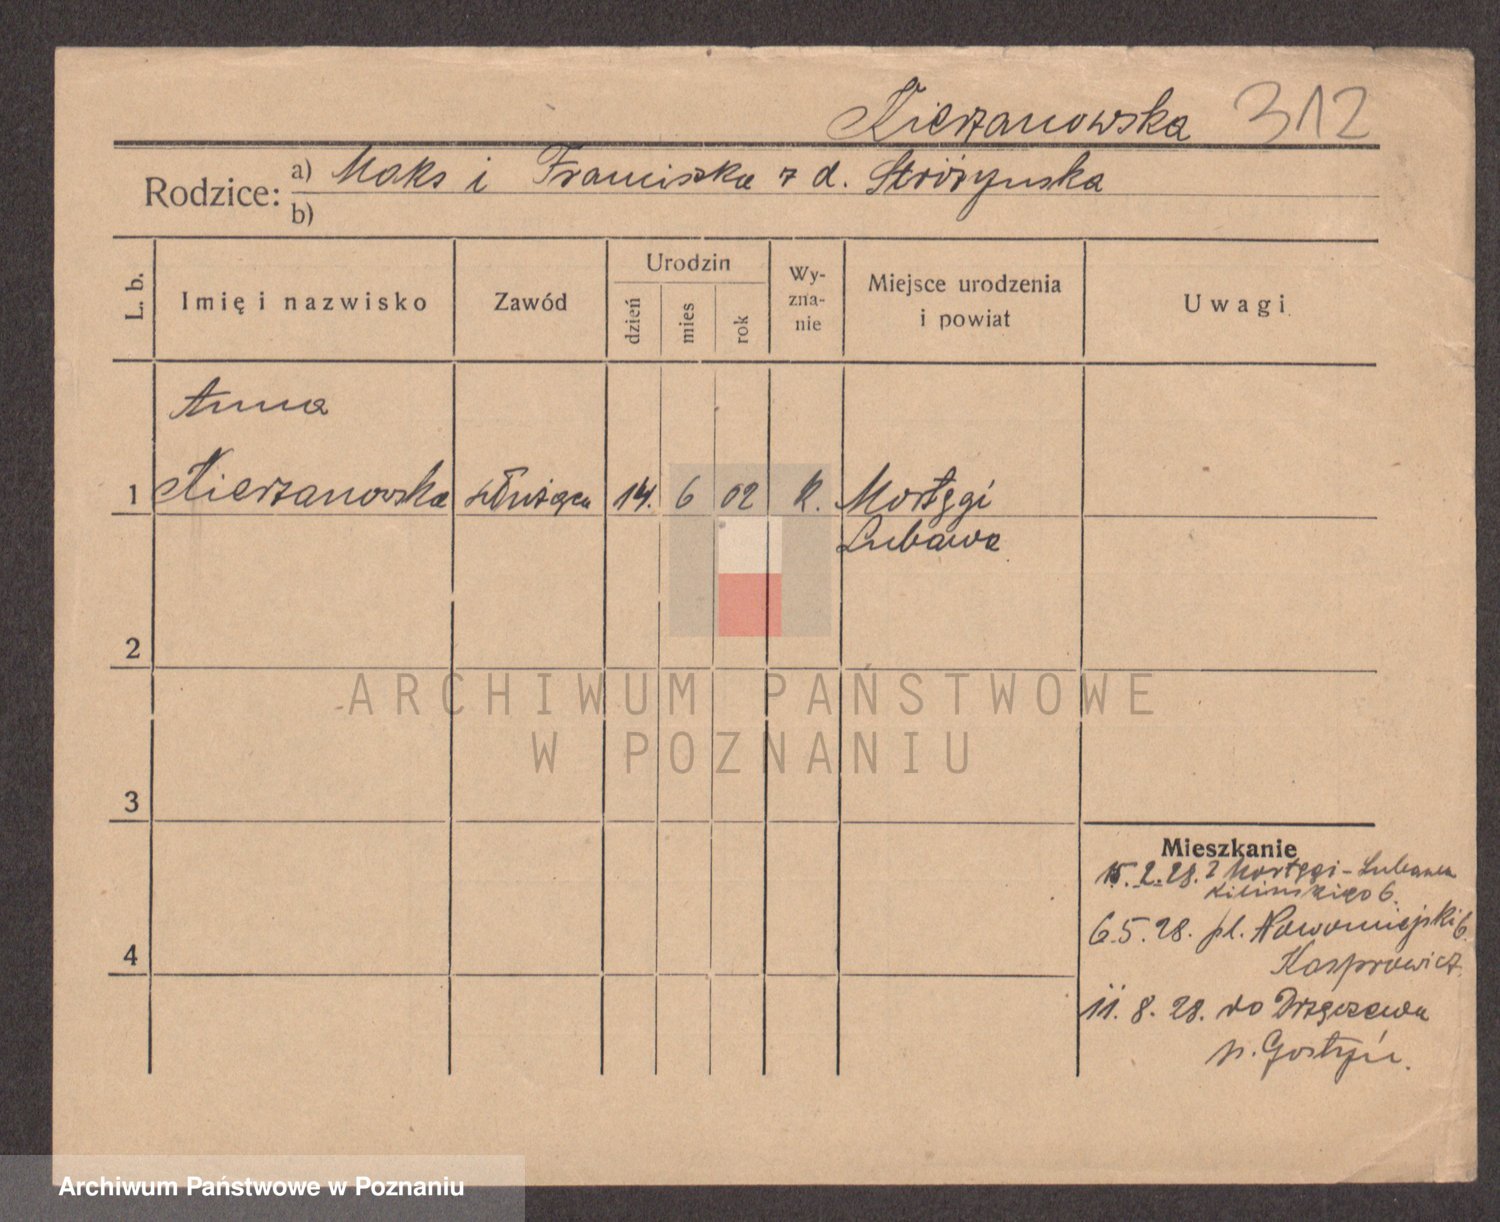 Kierzanowska 312
Rodzice: a) Maks i Franciszka z d. Stróżynska
b)
L. b.
Imię i nazwisko
Zawód
Urodzin
dzień
mies
rok
Wy-
zna-
nie
Miejsce urodzenia
i powiat
Uwagi
Anna
1 Kierzanowska służąca 14. 6 02 K. Mortęgi
Lubawa
2
ARCHIWUM PAŃSTWOWE
W POZNANIU
3
Mieszkanie
15.2.28. z Mortęgi - Lubawa
Kilinskiego 6.
4
6.5.28. pl. Nowomiejski 6.
Kasprowicz
11.8.28. do Drzęczewa
p. Gostyń.
Archiwum Państwowe w Poznaniu